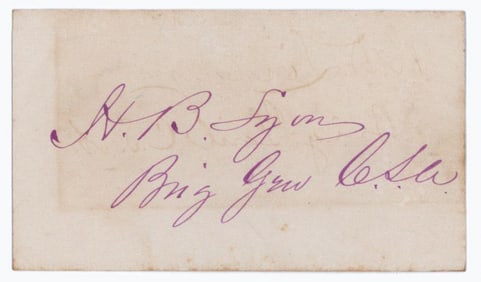 H. B. Lyon
Brig Gen C.S.A.